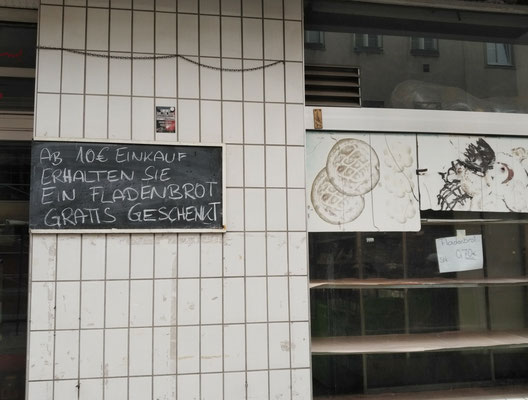 AB 10€ EINKAUF
ERHALTEN SIE
EIN FLADENBROT
GRATIS GESCHENKT
Fladenbrot
0,70€